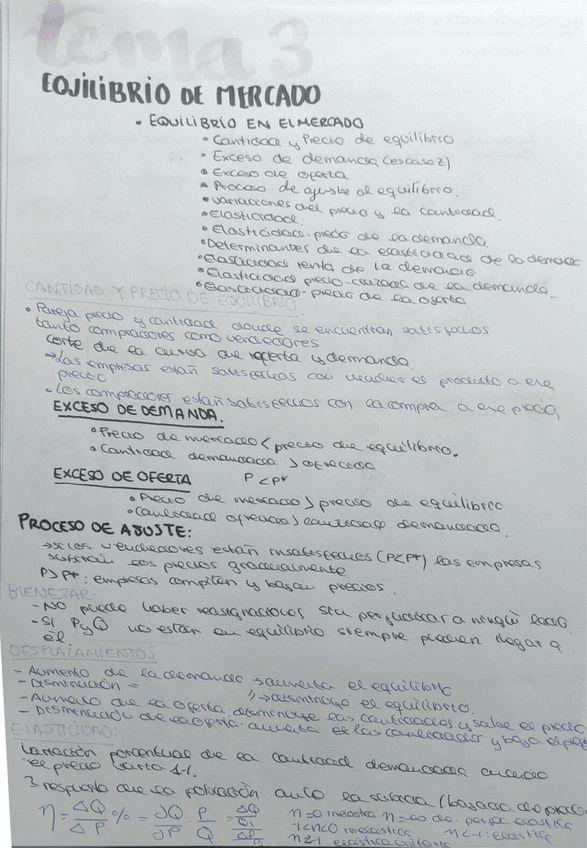 tema 3
EQUILIBRIO DE MERCADO
• EQUILIBRIO EN EL MERCADO
• Cantidad y Precio de equilibrio
• Exceso de demanda (escasez)
• Exceso de oferta
• Proceso de ajuste al equilibrio.
• Variaciones del precio y la cantidad.
• Elasticidad.
• Elasticidad-precio de la demanda.
• Determinantes de la elasticidad de la demanda
• Elasticidad renta de la demanda
• Elasticidad precio-cruzada de la demanda
• Elasticidad-precio de la oferta
CANTIDAD Y PRECIO DE EQUILIBRIO.
• Pareja precio y cantidad donde se encuentran satisfechos
tanto compradores como vendedores
corte de la curva de oferta y demanda
→ Las empresas están satisfechas con vender el producto a ese
precio
• Los compradores están satisfechos con la compra a ese precio,
EXCESO DE DEMANDA.
• Precio de mercado < precio de equilibrio.
• Cantidad demandada > ofrecida
EXCESO DE OFERTA P < P*
• Precio de mercado > precio de equilibrio
• Cantidad ofrecida > cantidad demandada.
PROCESO DE AJUSTE:
→ si los vendedores están insatisfechos (P<P*) las empresas
subirán sus precios gradualmente
P>P*: empresas compiten y bajan precios.
BIENESTAR:
- No puede haber reasignaciones sin perjudicar a
- Si P y Q no están en equilibrio siempre pueden llegar a
él.
DESPLAZAMIENTOS
- Aumento de la demanda → aumenta el equilibrio
- Disminución = // → disminuye el equilibrio.
- Aumento de la oferta: disminuye las cantidades y sube el precio
- Disminución de la oferta: aumenta las cantidades y baja el precio
ELASTICIDAD:
Variación porcentual de la cantidad demandada cuando
el precio varía 1%.
respuesta de la población ante la subida/bajada de precio
η = ΔQ/ΔP % = ∂Q/∂P · P/Q =
η=0 inelástica η=-∞ de. perfec. elástica
-1<η<0 inelástica η<-1: elástica
elástica unitaria